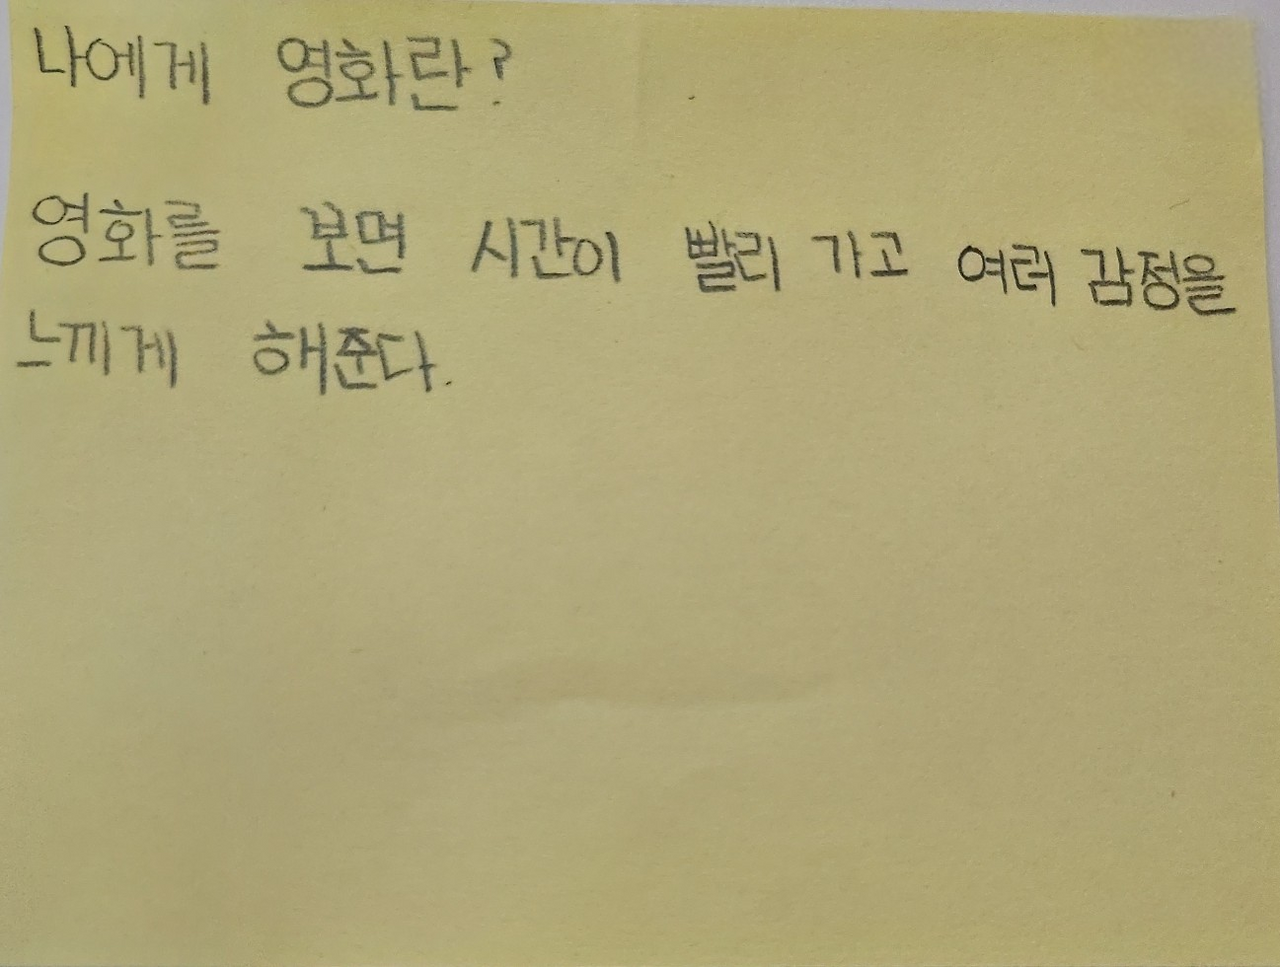 나에게 영화란?
영화를 보면 시간이 빨리 가고 여러 감정을
느끼게 해준다.